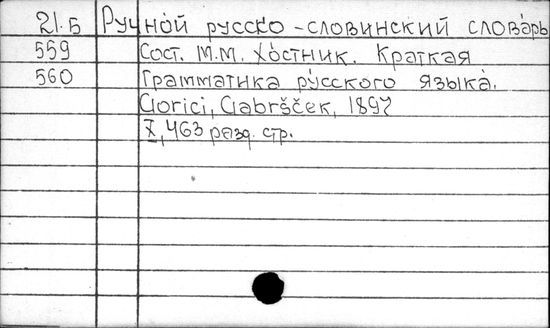 21.5 Ручно́й русско-словинский слова́рь
559 Сост. М.М. Хо́стник. Краткая
560 Грамматика ру́сского языка́.
Gorici, Gabršček, 1897
X, 463 разд. стр.